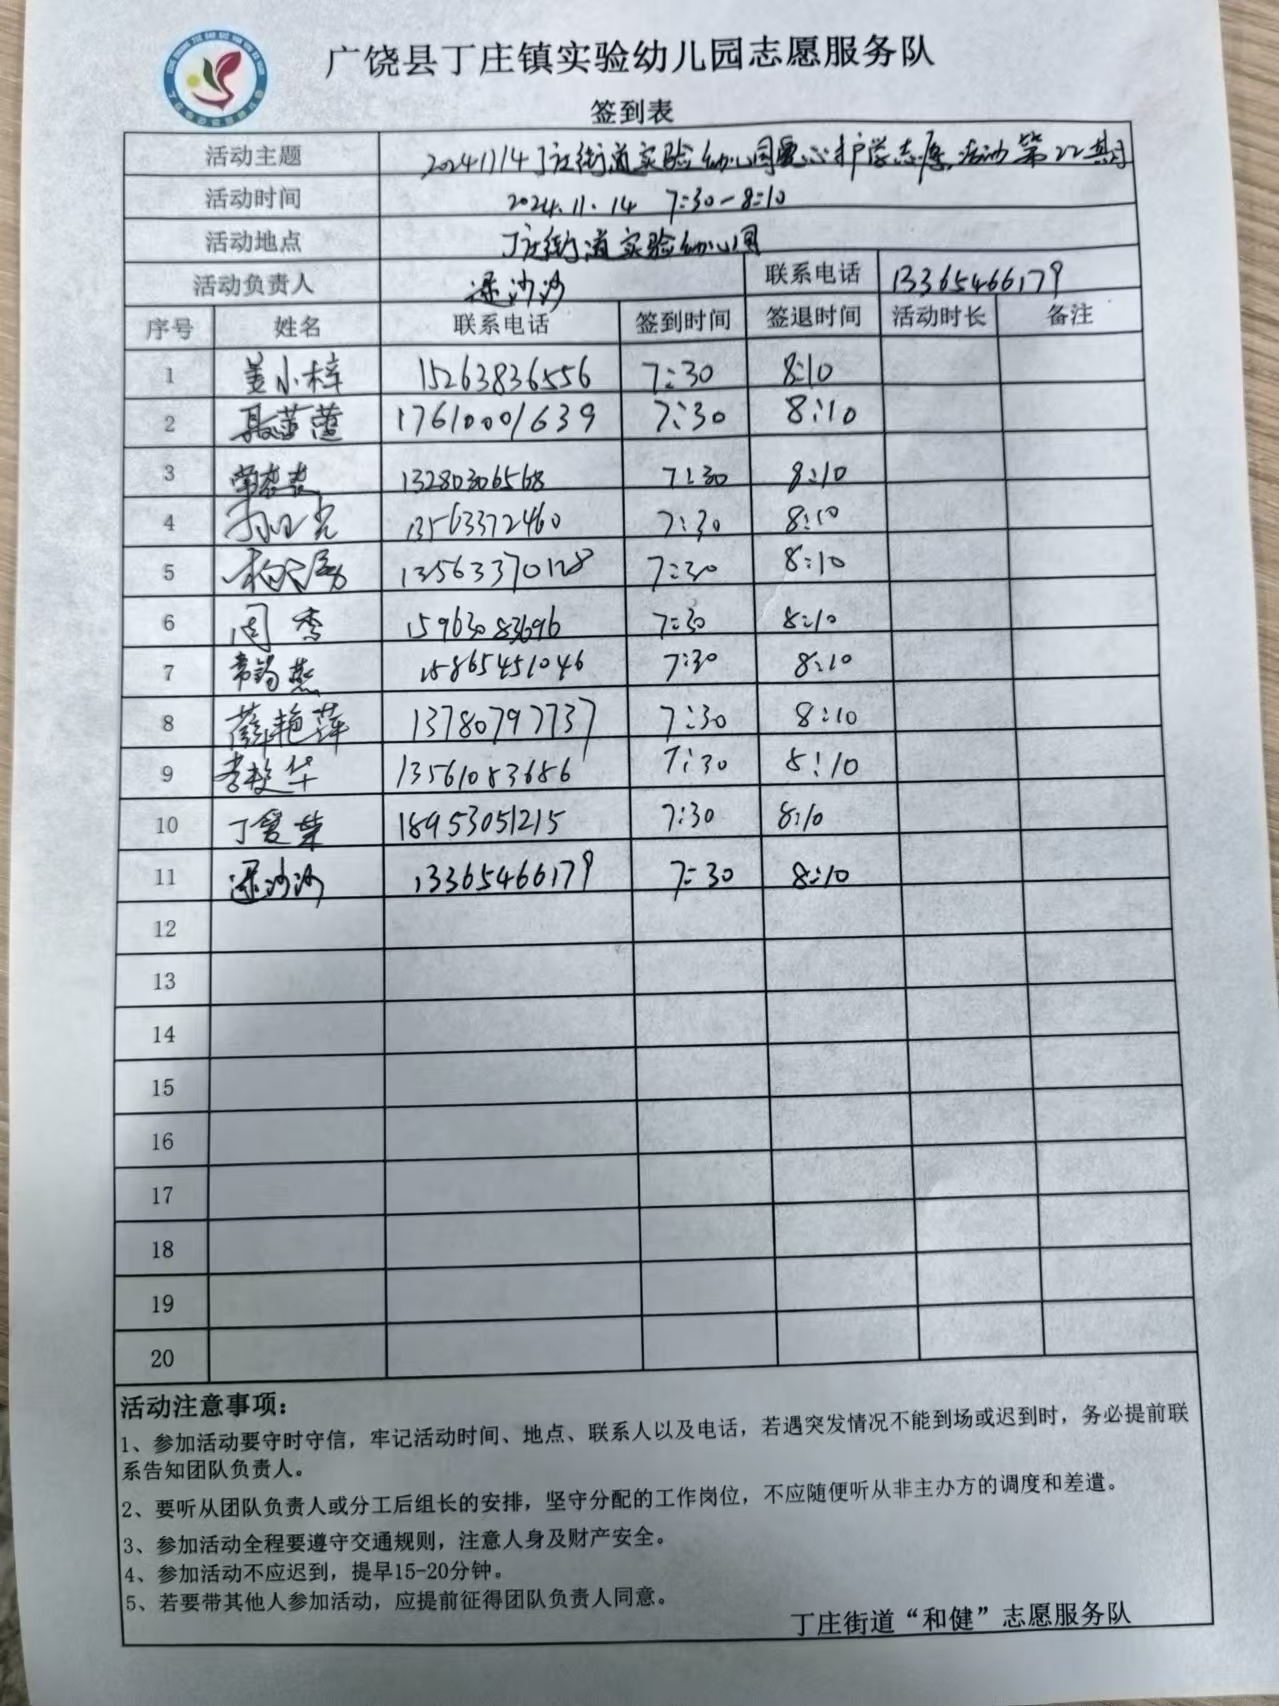 广饶县丁庄镇实验幼儿园志愿服务队
签到表
活动主题 20241114丁庄街道实验幼儿园爱心护学志愿活动第22期
活动时间 2024.11.14 7:30-8:10
活动地点 丁庄街道实验幼儿园
活动负责人 逯沙沙 联系电话 13365466179
序号 姓名 联系电话 签到时间 签退时间 活动时长 备注
1 姜小梓 15263836556 7:30 8:10
2 聂莲莲 17610001639 7:30 8:10
3 13280306568 7:30 8:10
4 13563372460 7:30 8:10
5 13563370128 7:30 8:10
6 周秀 15963083696 7:30 8:10
7 常锡燕 15865451046 7:30 8:10
8 薛艳萍 13780797737 7:30 8:10
9 13561083686 7:30 8:10
10 丁爱菜 18953051215 7:30 8:10
11 逯沙沙 13365466179 7:30 8:10
12
13
14
15
16
17
18
19
20
活动注意事项：
1、参加活动要守时守信，牢记活动时间、地点、联系人以及电话，若遇突发情况不能到场或迟到时，务必提前联
系告知团队负责人。
2、要听从团队负责人或分工后组长的安排，坚守分配的工作岗位，不应随便听从非主办方的调度和差遣。
3、参加活动全程要遵守交通规则，注意人身及财产安全。
4、参加活动不应迟到，提早15-20分钟。
5、若要带其他人参加活动，应提前征得团队负责人同意。
丁庄街道“和健”志愿服务队